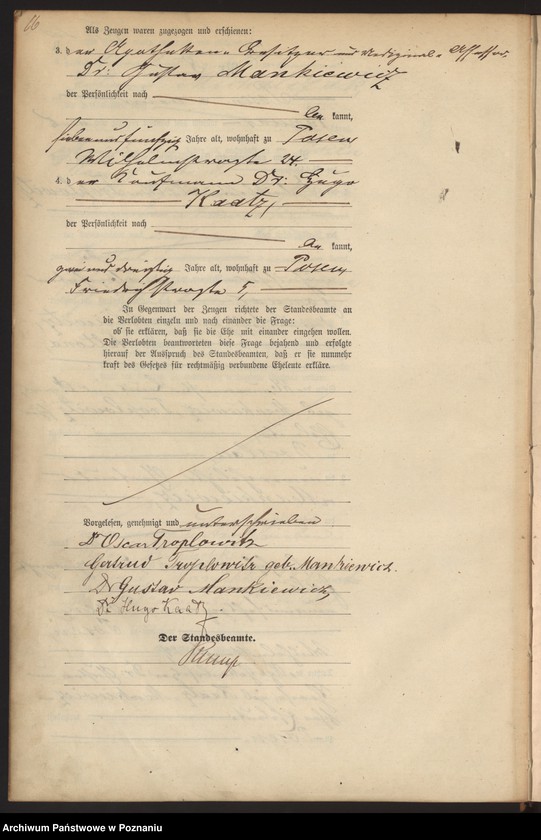 16
Als Zeugen waren zugezogen und erschienen:
3. der Apotheken-Besitzer und Medizinal-Assessor
Dr: Gustav Mankiewicz
der Persönlichkeit nach
be kannt,
siebenundfünfzig Jahre alt, wohnhaft zu Posen
Wilhelmstraße 24.
4. der Kaufmann Dr: Hugo
Kaatz,
der Persönlichkeit nach
be kannt,
zweiunddreißig Jahre alt, wohnhaft zu Posen
Friedrichstraße 5,
In Gegenwart der Zeugen richtete der Standesbeamte an
die Verlobten einzeln und nach einander die Frage:
ob sie erklären, daß sie die Ehe mit einander eingehen wollen.
Die Verlobten beantworteten diese Frage bejahend und erfolgte
hierauf der Ausspruch des Standesbeamten, daß er sie nunmehr
kraft des Gesetzes für rechtmäßig verbundene Eheleute erkläre.
Vorgelesen, genehmigt und unterschrieben
Dr Oscar Troplowitz
Gertrud Troplowitz geb. Mankiewicz.
Dr Gustav Mankiewicz
Dr Hugo Kaatz.
Der Standesbeamte.
Archiwum Państwowe w Poznaniu